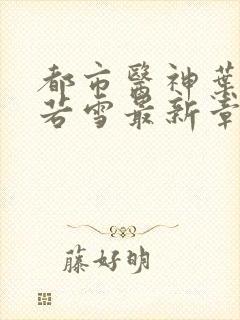 都市醫神葉
若雪最新章
藤好明